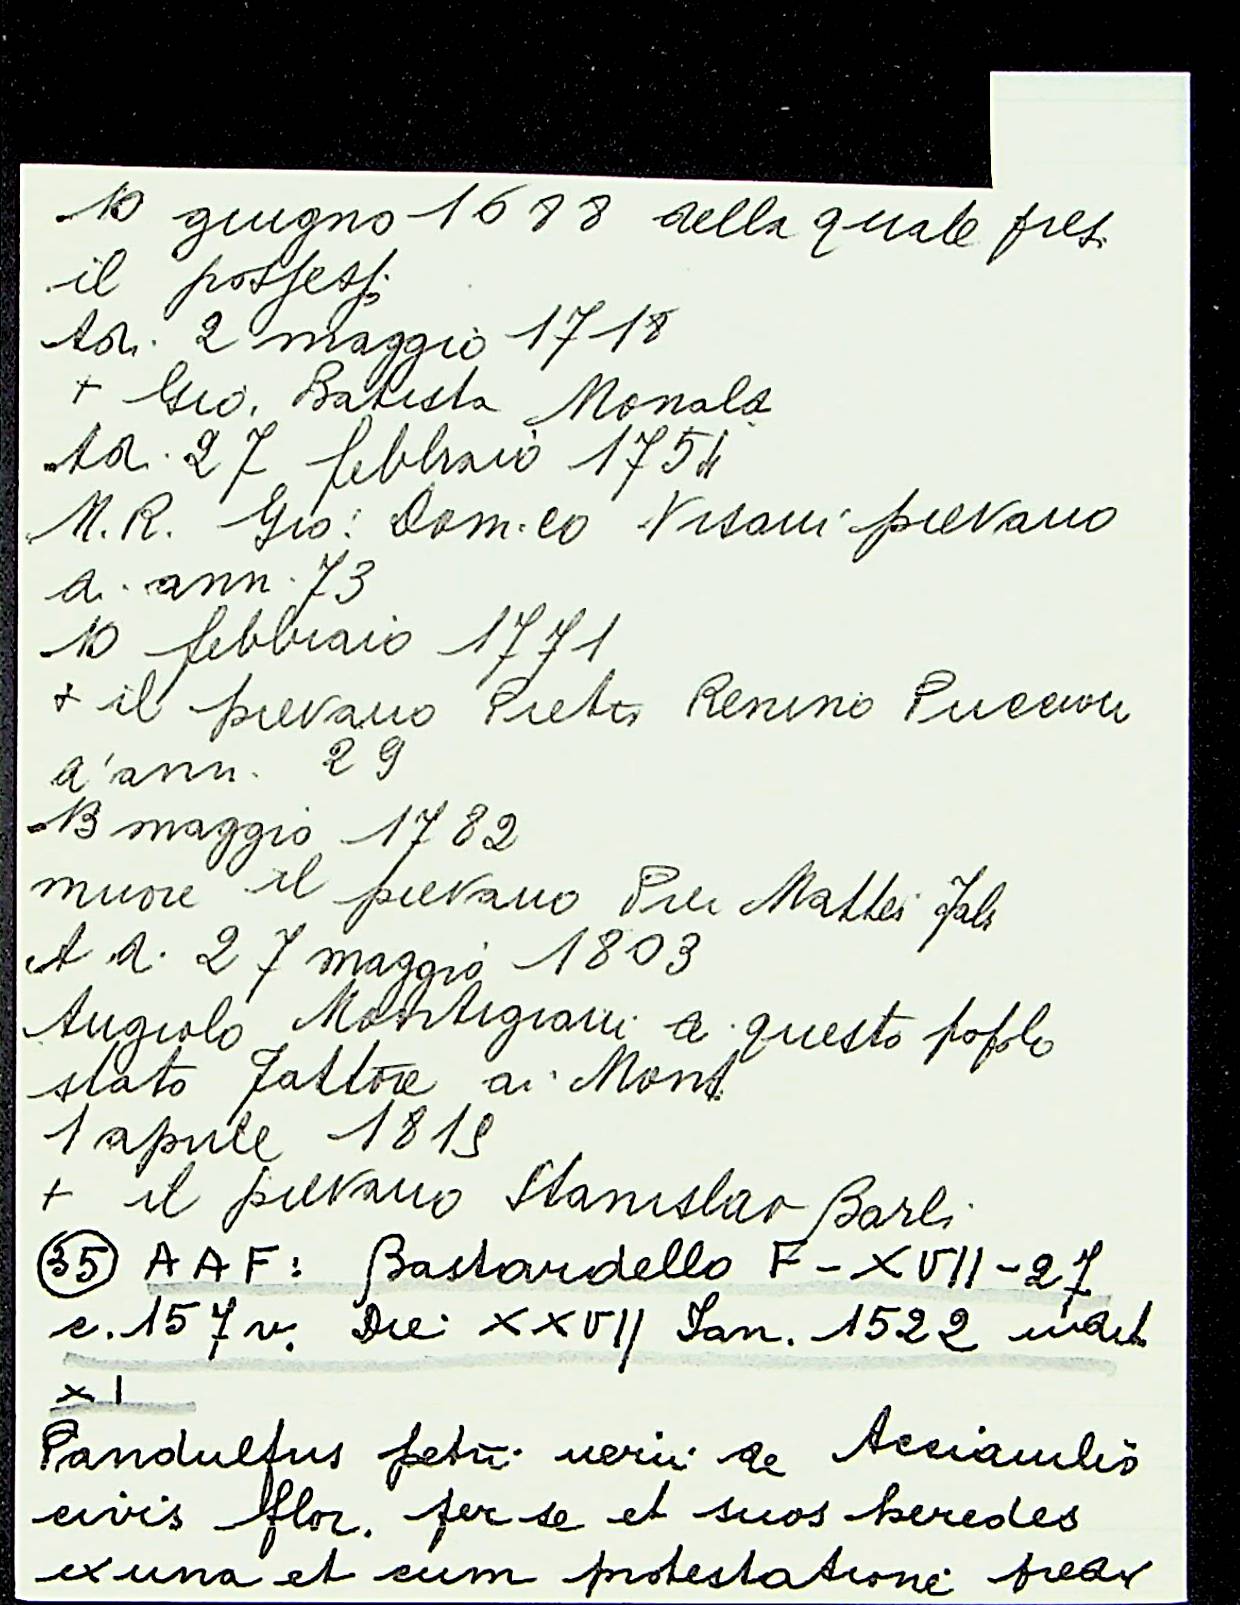 10 giugno 1688 della quale pres.
il possesso
Ad. 2 maggio 1718
+ Gio. Batista Monald
Ad. 27 febbraio 1754
M.R. Gio: Dom.co Visani pievano
a. ann. 73
10 febbraio 1771
+ il pievano Pietro Puccioni
a' ann. 29
13 maggio 1782
muore il pievano Pier Mattei
A d. 27 maggio 1803
Angiolo Montigiani a questo popolo
stato fattore ai Mont
1 aprile 1819
+ il pievano Stanislao Barli
(35) AAF: Bastardello F-XVII-27
c. 157 v. Die XXVII Jan. 1522 indict
XI
Pandulfus petri nerii de Acciaiuolis
civis flor. per se et suos heredes
ex una et cum protestatione